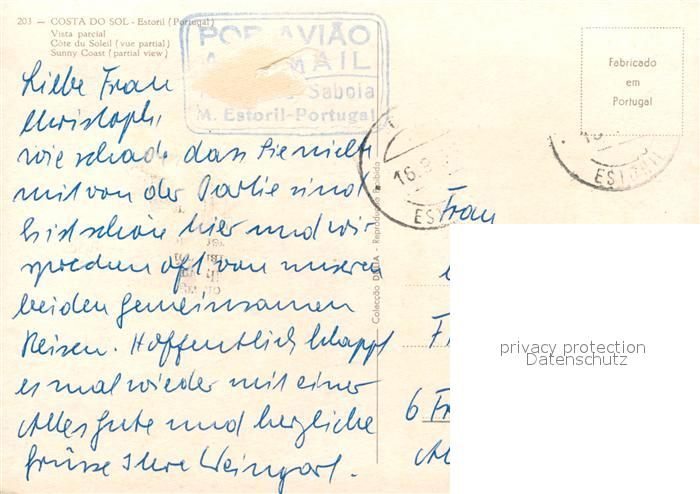 203 — COSTA DO SOL - Estoril (Portugal)
Vista parcial
Côte du Soleil (vue partial)
Sunny Coast (partial view)
POR AVIÃO
MAIL
Saboia
M. Estoril-Portugal
Fabricado
em
Portugal
16.9
EST
ESTORIL
Liebe Frau
Christoph,
wie schade dass Sie nicht
mit von der Partie sind
Es ist schön hier und wir
sprechen oft von unseren
beiden gemeinsamen
Reisen. Hoffentlich klappt
es mal wieder mit einer
Alles gute und herzliche
Grüsse Ihre Weingart.
Colecção DÚLIA - Reprodução Proibida
Frau
F
6 Fr
privacy protection
Datenschutz